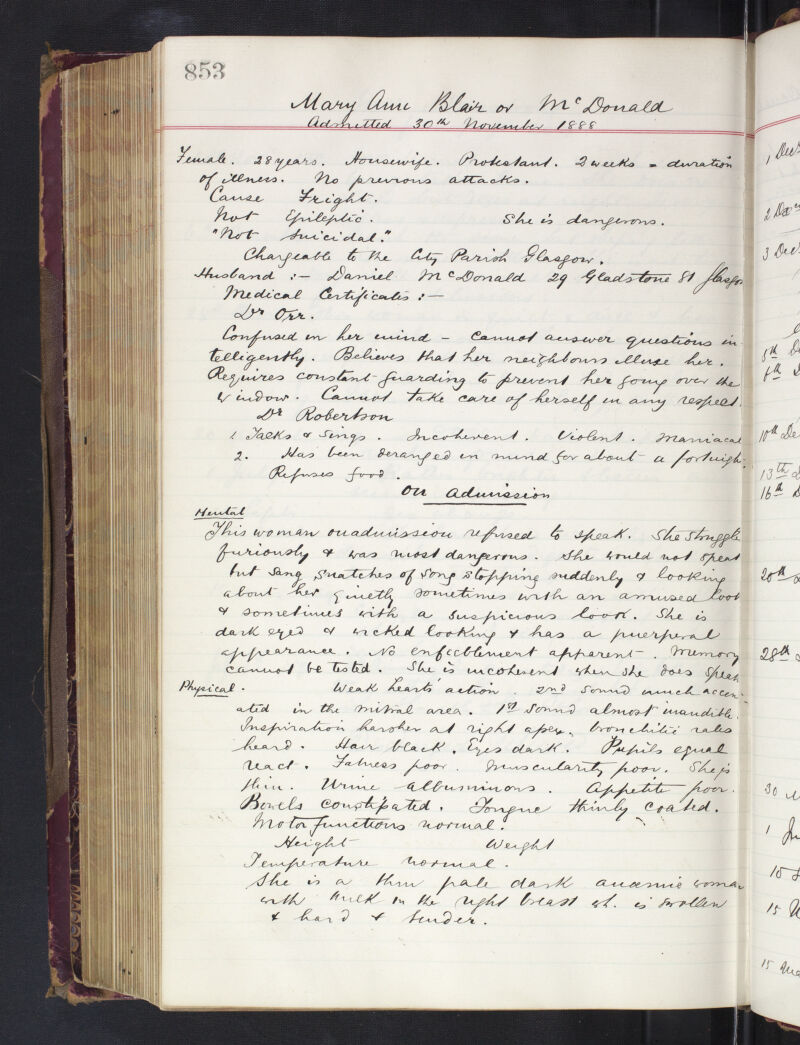 853
Mary Ann Blair or McDonald
Admitted 30th November 1888
Female. 28 years. Housewife. Protestant. 2 weeks = duration
of illness. No previous attacks.
Cause Fright.
Not Epileptic. She is dangerous.
"Not Suicidal."
Chargeable to the City Parish Glasgow.
Husband :- Daniel McDonald 29 Gladstone St Glasgow
Medical Certificates :-
Dr Orr.
Confused in her mind - cannot answer questions in-
telligently. Believes that her neighbours illuse her.
Requires constant guarding to prevent her going over the
window. Cannot take care of herself in any respect.
Dr Robertson
1. Talks & Sings. Incoherent. Violent. Maniacal
2. Has been deranged in mind for about a fortnight.
Refuses food.
On admission
Mental
This woman on admission refused to speak. She struggle
furiously & was most dangerous. She would not speak
but sang snatches of song stopping suddenly & looking
about her quietly sometimes with an amused look
& sometimes with a suspicious look. She is
dark eyed & wicked looking & has a puerperal
appearance. No enfeeblement apparent. Memory
cannot be tested. She is incoherent when she does speak
Physical. Weak hearts action. 2nd Sound much accen-
ated in the mitral area. 1st Sound almost inaudible.
Inspiration harsher at right apex, bronchitic rales
heard. Hair black. Eyes dark. Pupils equal
react. Fatness poor. Muscularity poor. She is
thin. Urine albuminous. Appetite poor.
Bowels constipated. Tongue thinly coated.
Motor functions normal.
Height Weight
Temperature normal.
She is a thin pale dark anæmic woman
with milk in the right breast wh. is swollen
& hard & tender.
1 Decr
3 Decr
10th De
13th
16th
20th
28th
30
1
15
15
15 Ma